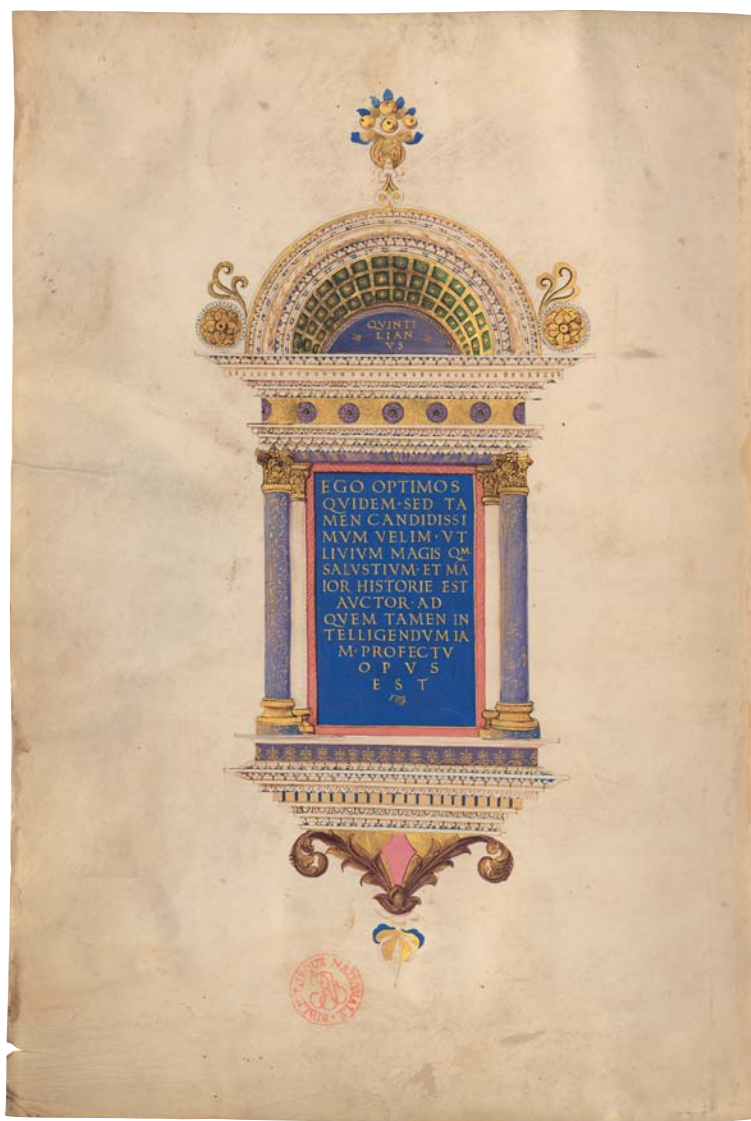 QVINTI
LIAN
VS
EGO OPTIMOS
QVIDEM·SED TA
MEN CANDIDISSI
MVM VELIM·VT
LIVIVM MAGIS QM
SALVSTIVM·ET MA
IOR HISTORIE EST
AVCTOR·AD
QVEM TAMEN IN
TELLIGENDVM IA
M·PROFECTV
OPVS
EST
BIBLIOTHEQUE NATIONALE